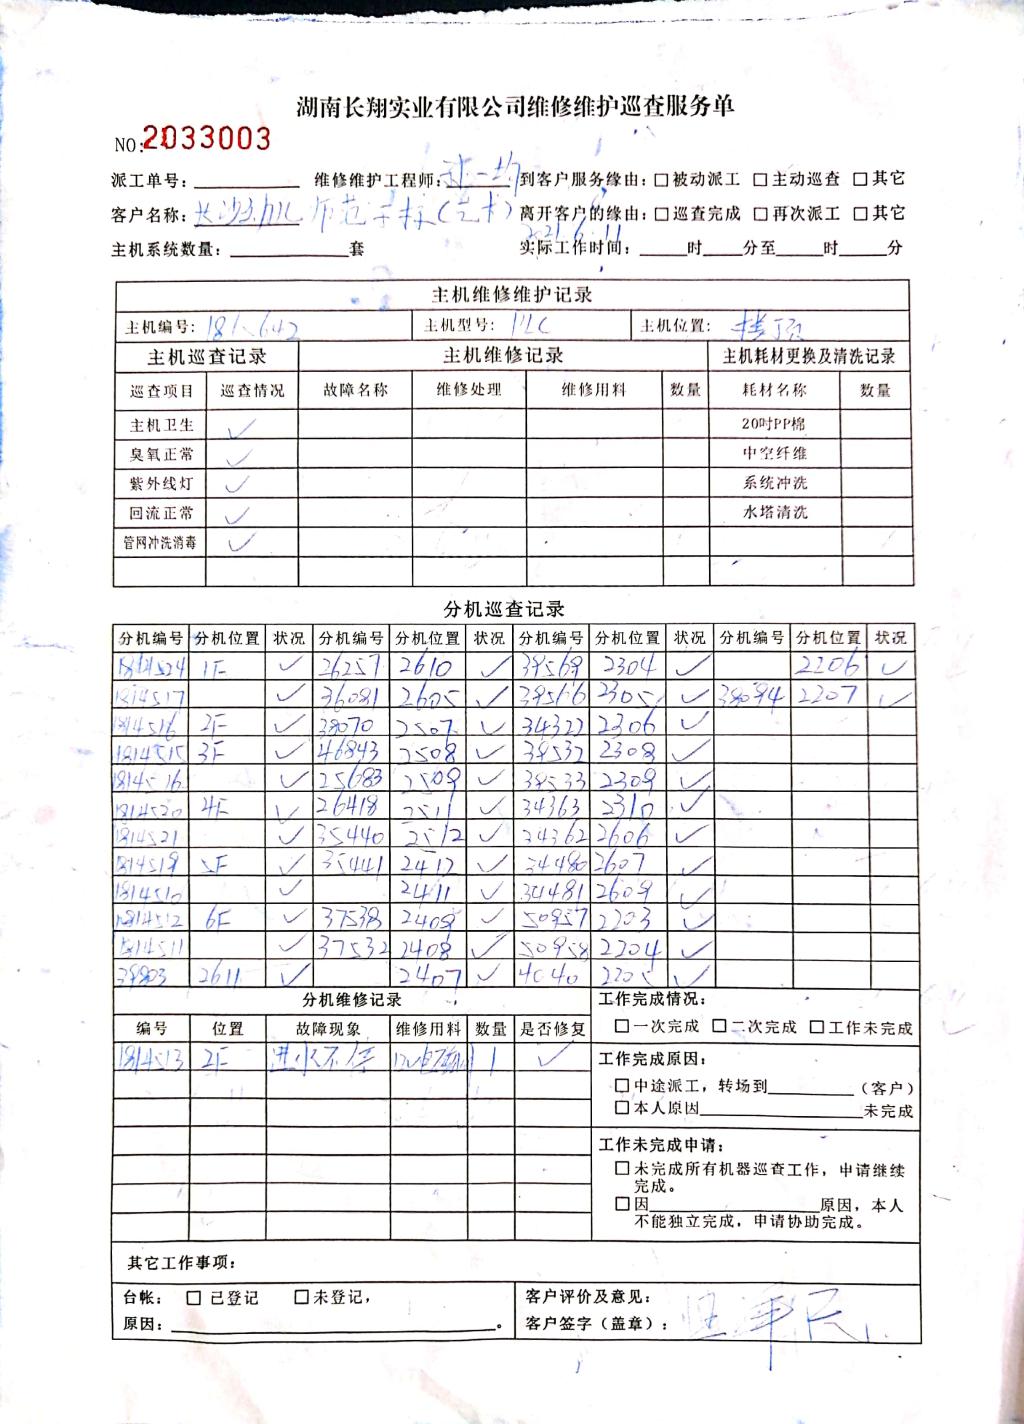 湖南长翔实业有限公司维修维护巡查服务单
NO:2033003
派工单号: 维修维护工程师: 到客户服务缘由:□被动派工 □主动巡查 □其它
客户名称: 长沙幼儿师范学校(艺术) 离开客户的缘由:□巡查完成 □再次派工 □其它
2021.6.11
主机系统数量: 套 实际工作时间: 时 分至 时 分
主机维修维护记录
主机编号: 主机型号: 主机位置: 楼顶
主机巡查记录 主机维修记录 主机耗材更换及清洗记录
巡查项目 巡查情况 故障名称 维修处理 维修用料 数量 耗材名称 数量
主机卫生 ✓ 20吋PP棉
臭氧正常 ✓ 中空纤维
紫外线灯 ✓ 系统冲洗
回流正常 ✓ 水塔清洗
管网冲洗消毒 ✓
分机巡查记录
分机编号 分机位置 状况 分机编号 分机位置 状况 分机编号 分机位置 状况 分机编号 分机位置 状况
1814524 1F ✓ 26257 2610 ✓ 39569 2304 ✓ 2206 ✓
1814517 ✓ 36081 2605 ✓ 39566 2305 ✓ 38094 2207 ✓
1814516 2F ✓ 38070 2507 ✓ 34322 2306 ✓
1814515 3F ✓ 46843 2508 ✓ 39532 2308 ✓
1814516 ✓ 25683 2509 ✓ 39533 2309 ✓
1814520 4F ✓ 26418 2511 ✓ 34363 2310 ✓
1814521 ✓ 35440 2512 ✓ 34362 2606 ✓
1814519 5F ✓ 35441 2412 ✓ 34480 2607 ✓
1814510 ✓ 2411 ✓ 34481 2609 ✓
1814512 6F ✓ 37538 2409 ✓ 50957 2203 ✓
1814511 ✓ 37532 2408 ✓ 50958 2204 ✓
39803 2611 ✓ 2407 ✓ 4040 2205 ✓
分机维修记录 工作完成情况:
编号 位置 故障现象 维修用料 数量 是否修复 □一次完成 □二次完成 □工作未完成
1814513 2F 进水不停 1 ✓ 工作完成原因:
□中途派工,转场到 (客户)
□本人原因 未完成
工作未完成申请:
□未完成所有机器巡查工作,申请继续
完成。
□因 原因,本人
不能独立完成,申请协助完成。
其它工作事项:
台帐: □已登记 □未登记, 客户评价及意见:
原因: 。 客户签字(盖章):